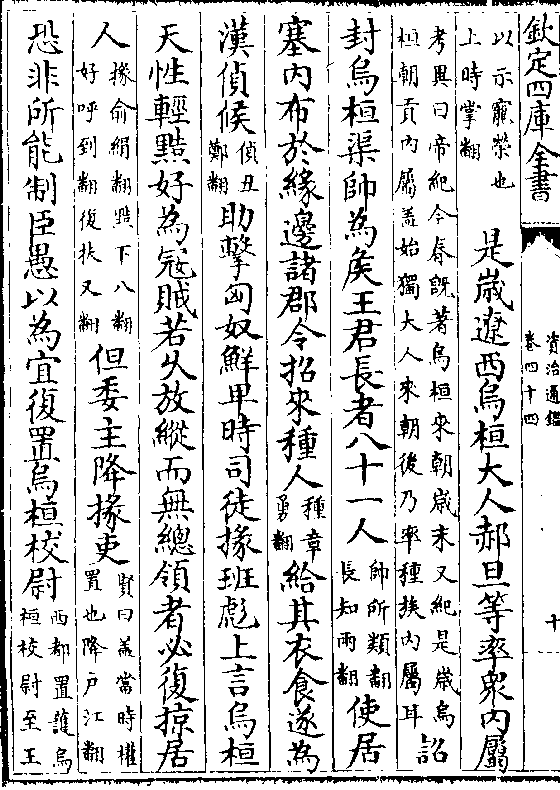 欽定四庫全書
資治通鑑
卷四十四
十
以示寵榮也
上時掌翻
是歲遼西烏桓大人郝旦等率衆內屬
考異曰帝紀今春旣著烏桓來朝歲末又紀是歲烏
桓朝貢內屬蓋始獨大人來朝後乃率種族內屬耳
詔
封烏桓渠帥為矦王君長者八十一人
帥所類翻
長知兩翻
使居
塞內布於緣邊諸郡令招來種人
種章
勇翻
給其衣食遂為
漢偵候
偵丑
鄭翻
助擊匈奴鮮卑時司徒掾班彪上言烏桓
天性輕黠好為寇賊若久放縱而無總領者必復掠居
人
掾俞絹翻黠下八翻
好呼到翻復扶又翻
但委主降掾吏
賢曰蓋當時權
置也降戶江翻
恐非所能制臣愚以為宜復置烏桓校尉
西都置護烏
桓校尉至王